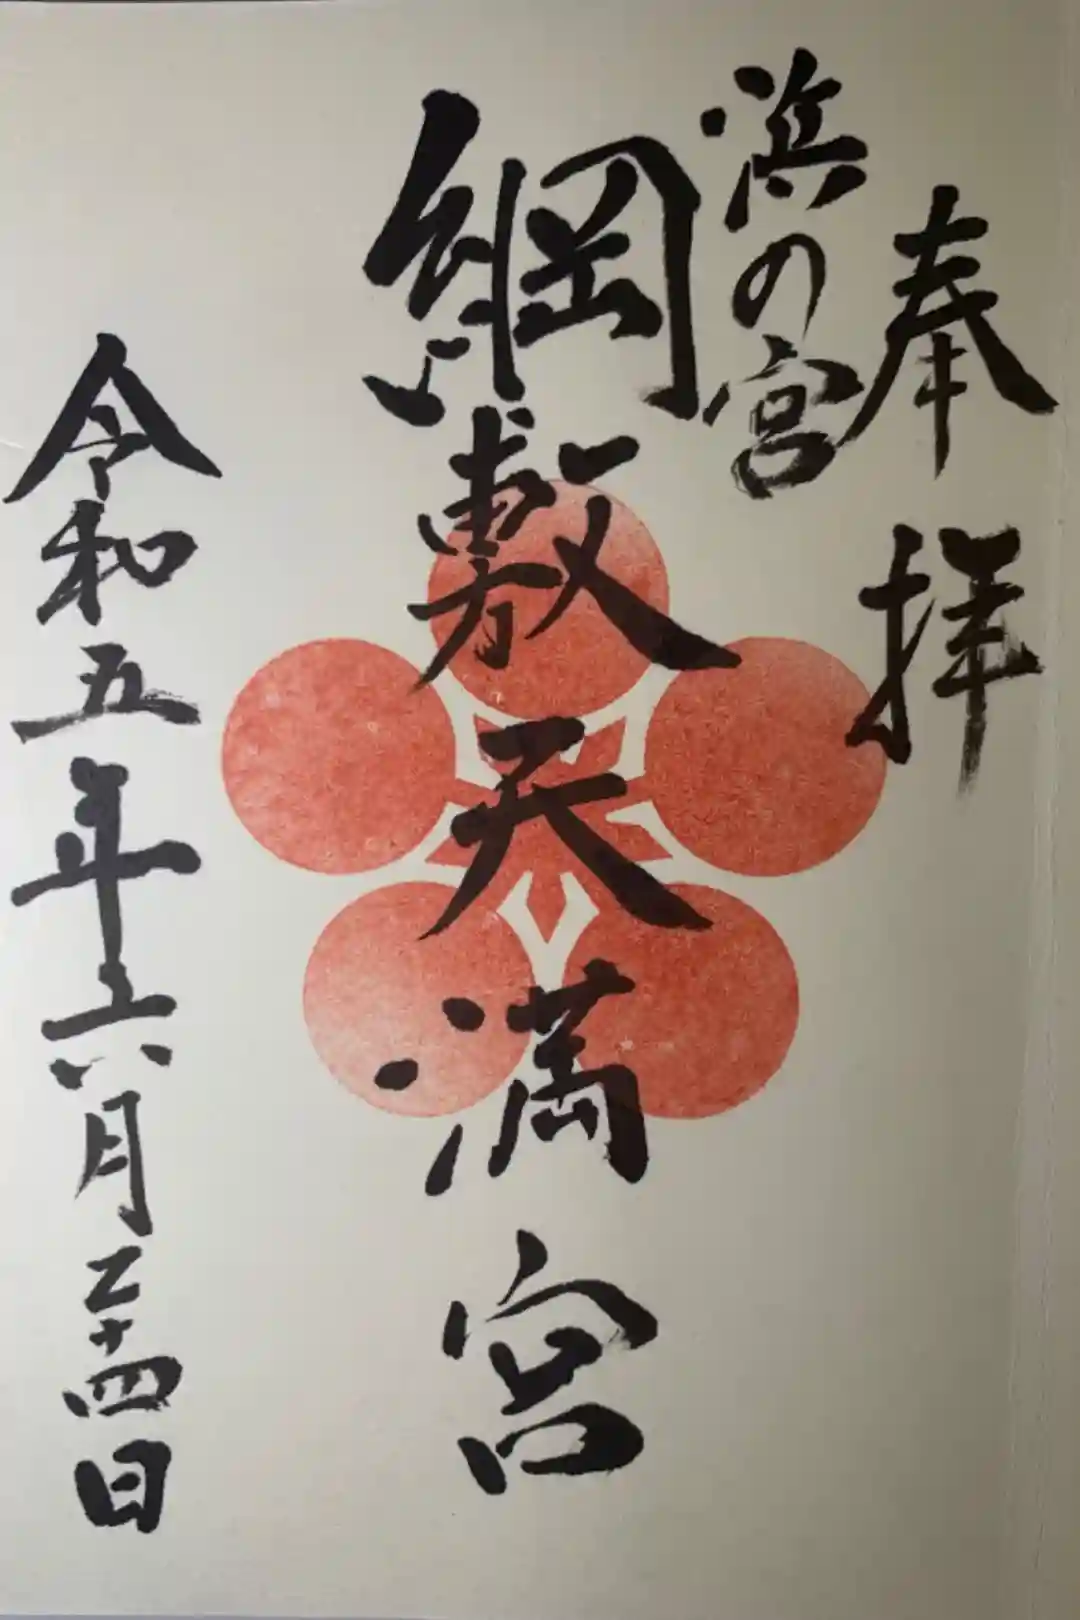 奉拝
浜の宮
綱敷天満宮
令和五年六月二十四日